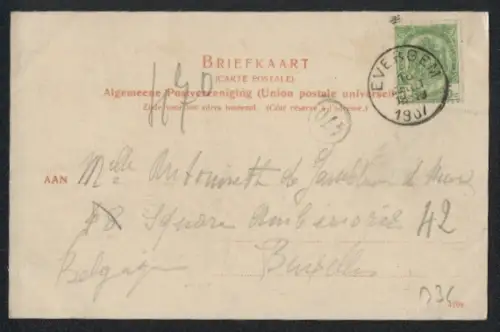 BRIEFKAART
(CARTE POSTALE)
Algemeene Postvereeniging (Union postale universelle)
Zijde voor het adres bestemd. (Côté réservé à l'adresse.)
EVERGEM
1907
AAN Mlle Antoinette de
Square Ambiorix 42
Belgique Bruxelles
D36